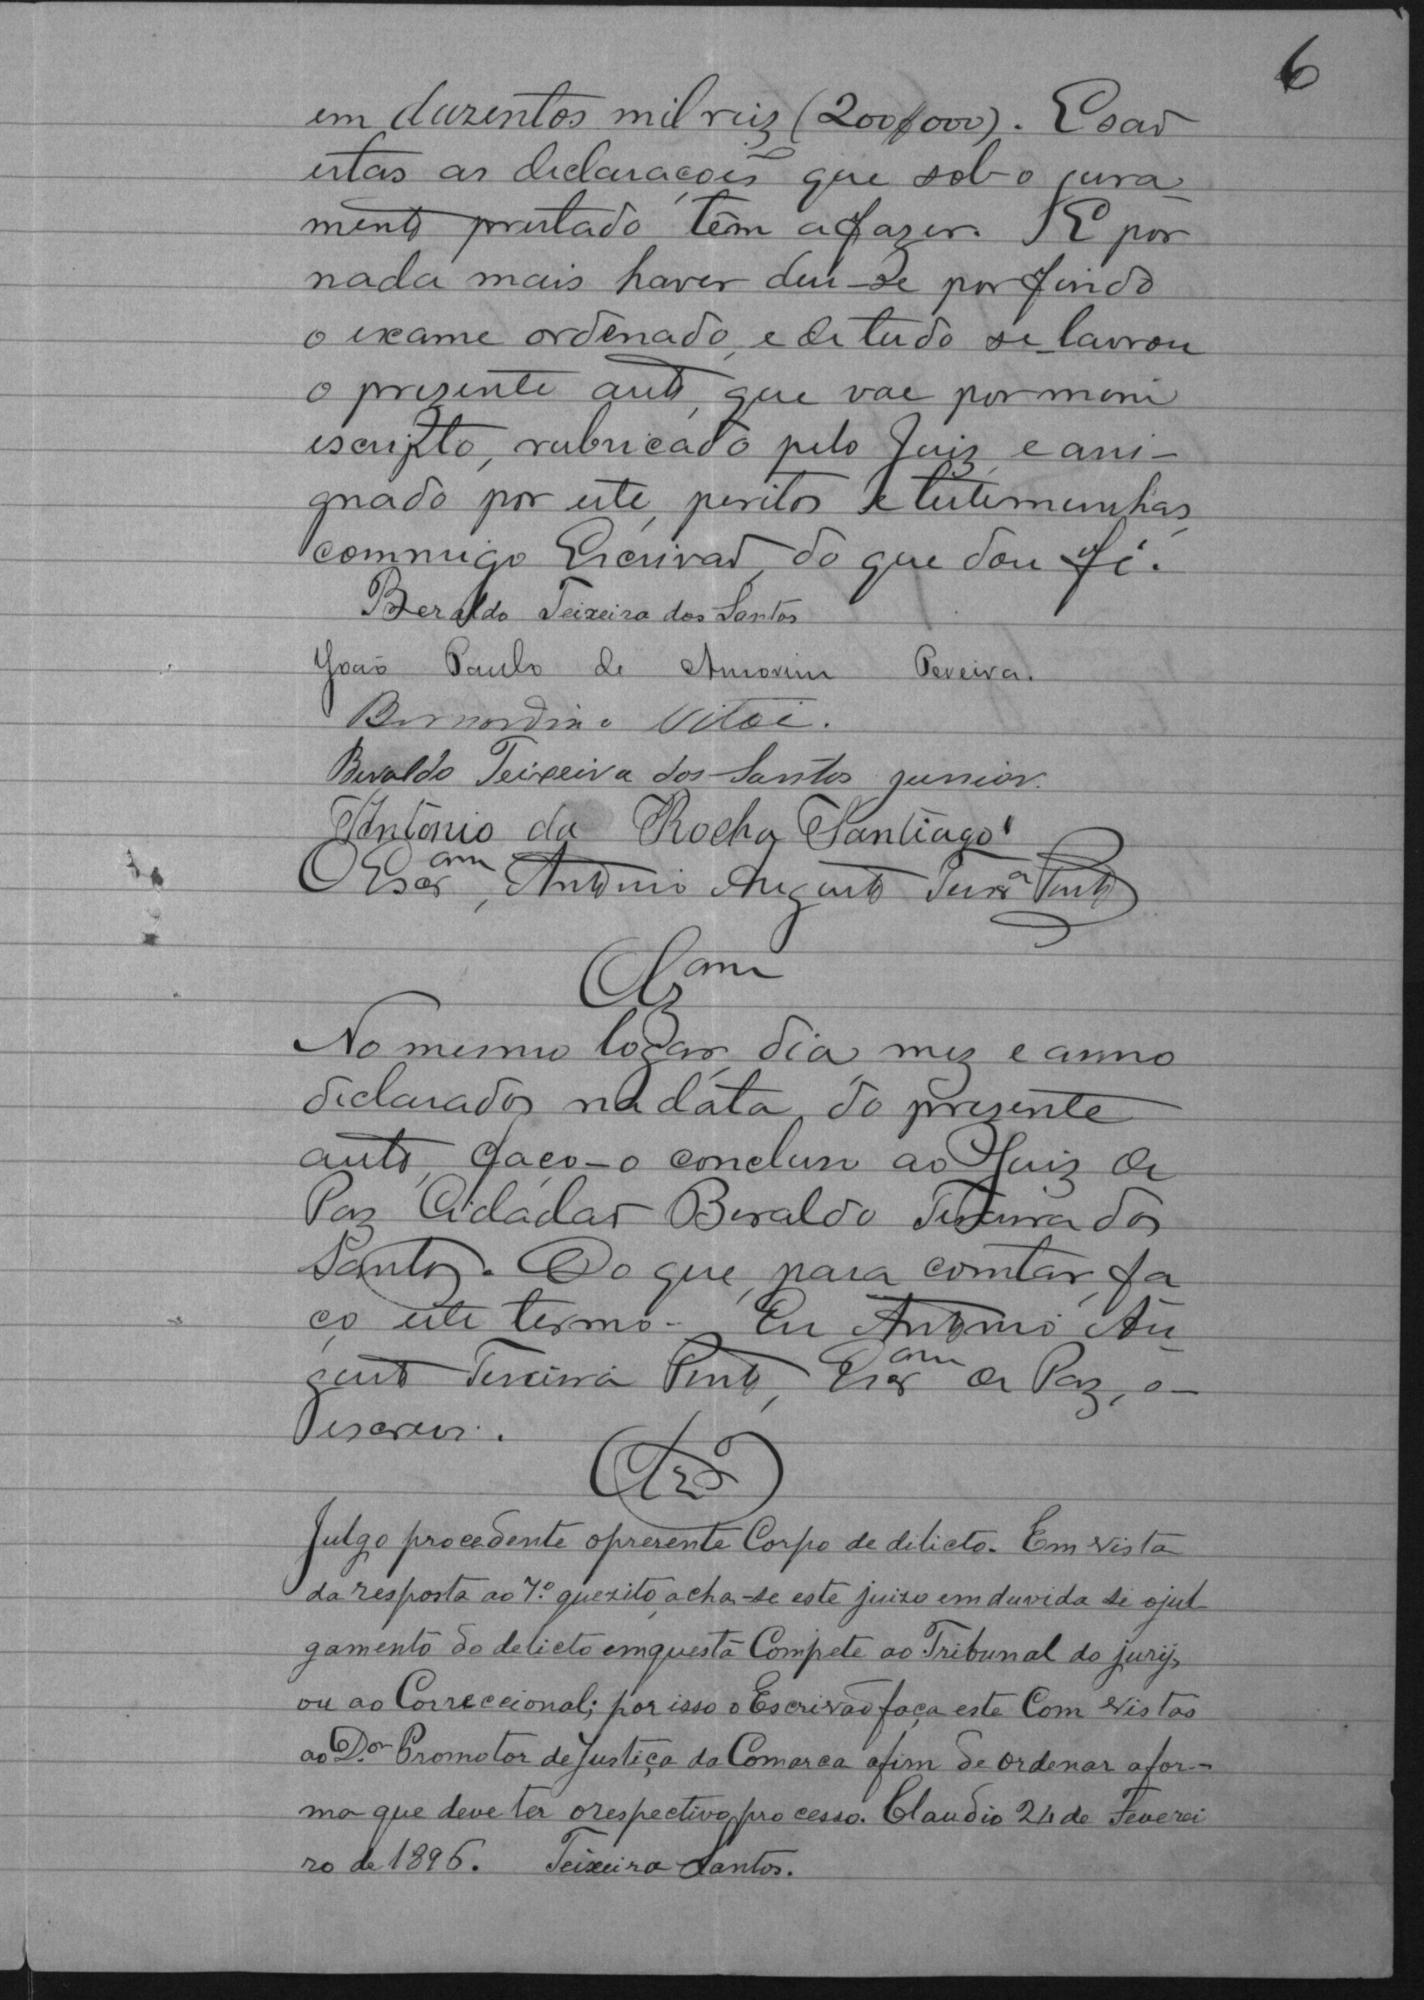 6
em duzentos mil reis (200$000). E são
estas as declarações que sob o jura
mento prestado têm a fazer. E por
nada mais haver deu-se por findo
o exame ordenado, e de tudo se lavrou
o prezente auto, que vae por mim
escripto, rubricado pelo Juiz, e assi-
gnado por este, peritos e testemunhas,
commigo Escrivão, do que dou fé.
Beraldo Teixeira dos Santos
João Paulo de Amorim Pereira.
Bernardino Vitoi.
Beraldo Teixeira dos Santos junior.
Antonio da Rocha Santiago
O Escr.am, Antonio Augusto Teixr.a Pinto
Clzam
No mesmo logar, dia, mez e anno
declarados na data do prezente
auto, faço-o concluso ao Juiz de
Paz Cidadão Beraldo Teixeira dos
Santos. Do que, para constar, fa
ço este termo. Eu Antonio Au-
gusto Teixeira Pinto, Escr.am de Paz, o
escrevi.
Clzo
Julgo procedente o presente Corpo de delicto. Em vista
da resposta ao 7.º quezito, acha-se este juizo em duvida si o jul
gamento do delicto em questã Compete ao Tribunal do jury,
ou ao Correccional; por isso o Escrivão faça este Com vistas
ao D.or Promotor de Justiça da Comarca afim de ordenar a for-
ma que deve ter o respectivo processo. Claudio 24 de Feverei
ro de 1896. Teixeira Santos.